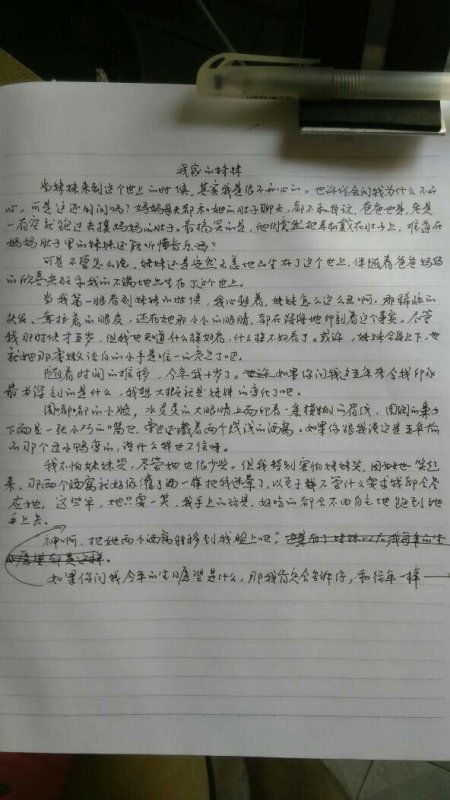 我家的妹妹
当妹妹来到这个世上的时候,其实我是很不开心的。也许你会问我为什么不开
心,可是这还用问吗?妈妈每天都和她的肚子聊天,都不和我说,爸爸也是,总是
一有空就跑过去摸妈妈的肚子。最搞笑的是,他们竟然把耳机戴在肚子上,难道在
妈妈肚子里的妹妹还能听懂音乐吗?
可是不管怎么说,妹妹还是安然无恙地出生在了这个世上,伴随着爸爸妈妈
的欣喜和我的不满地出生在了这个世上。
当我第一眼看到妹妹的时候,我心想着,妹妹怎么这么丑啊,那稀疏的
头发、耷拉着的眼皮,还有她那小小的眼睛,都在深深地印刻着这个事实。尽管
我那时候才五岁,但我也知道什么样好看,什么样不好看了。或许,妹妹全身上下,也
就她那李嫩洁白的小手是唯一的亮点了吧。
随着时间的推移,今年我十岁了。如果你问我这五年来令我印象
最为深刻的是什么,我想大概就是妹妹的变化了吧。
圆嘟嘟的小脸,水灵灵的大眼睛上面印着一条横的眉线,圆圆的鼻子
下面是一张小巧的嘴巴,旁边还藏着两个浅浅的酒窝。如果你跟我说这是五年前
的那个丑小鸭变的,说什么我也不信呀。
我不怕妹妹哭,尽管她也很少哭。但我特别害怕妹妹笑,因为她一笑起
来,那两个酒窝就好像灌了酒一样把我迷晕了,以至于无论什么东西我都会给
她,这些年,她只要一笑,我手上的玩具、好吃的都会不由自主地跑到她
手上去。
神啊,把她两个酒窝转移到我脸上吧!
如果你问我今年的生日愿望是什么,那我肯定会告诉你,和往年一样——